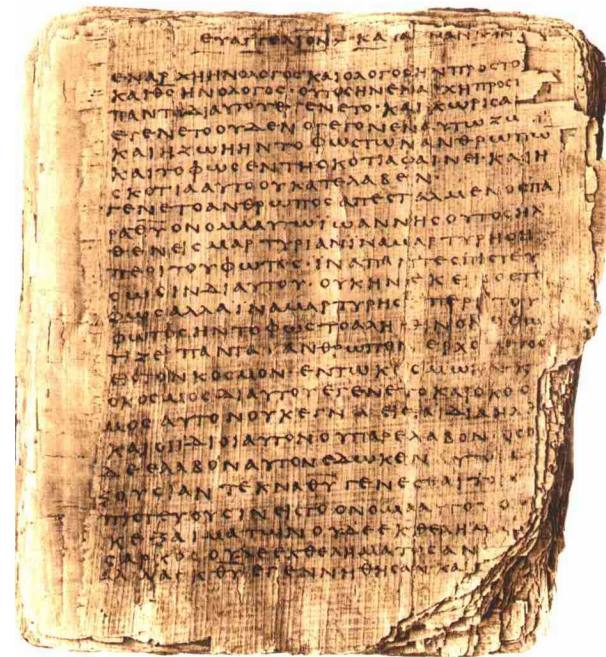 ΕΥΑΓΓΕΛΙΟΝ ΚΑΤΑ
ΕΝΑΡΧΗΗΝΟΛΟΓΟΣΚΑΙΟΛΟΓΟΣΗΝΠΡΟΣΤΟ
ΚΑΙΘΣΗΝΟΛΟΓΟΣ·ΟΥΤΟΣΗΝΕΝΑΡΧΗΠΡΟΣΤ
ΠΑΝΤΑΔΙΑΥΤΟΥΕΓΕΝΕΤΟ·ΚΑΙΧΩΡΙΣΑΥ
ΕΓΕΝΕΤΟΟΥΔΕΝΟΓΕΓΟΝΕΝΑΥΤΩΖΩ
ΚΑΙΗΖΩΗΗΝΤΟΦΩΣΤΩΝΑΝΘΡΩΠΩ
ΚΑΙΤΟΦΩΣΕΝΤΗΣΚΟΤΙΑΦΑΙΝΕΙ·ΚΑΙΗ
ΣΚΟΤΙΑΑΥΤΟΟΥΚΑΤΕΛΑΒΕΝ
ΓΕΝΕΤΟΑΝΘΡΩΠΟΣΑΠΕΣΤΑΛΜΕΝΟΣΠΑ
ΡΑΘΥΟΝΟΜΑΑΥΤΩΙΩΑΝΝΗΣΟΥΤΟΣΗΛ
ΘΕΝΕΙΣΜΑΡΤΥΡΙΑΝΙΝΑΜΑΡΤΥΡΗΣΗ
ΠΕΡΙΤΟΥΦΩΤΟΣ·ΙΝΑΠΑΝΤΕΣΠΙΣΤΕΥ
ΣΩΣΙΝΔΙΑΥΤΟΥ·ΟΥΚΗΝΕΚΕΙΝΟΣΤΟ
ΦΩΣΑΛΛΑΙΝΑΜΑΡΤΥΡΗΣΗΠΕΡΙΤΟΥ
ΦΩΤΟΣΗΝΤΟΦΩΣΤΟΑΛΗΘΙΝΟΝΟΦΩ
ΤΙΖΕΙΠΑΝΤΑΑΝΘΡΩΠΟΝΕΡΧΟΜΕΝΟ
ΕΙΣΤΟΝΚΟΣΜΟΝ·ΕΝΤΩΚΟΣΜΩΗΝΚ
ΟΚΟΣΜΟΣΔΙΑΥΤΟΥΕΓΕΝΕΤΟΚΑΙΟΚΟΣ
ΜΟΣΑΥΤΟΝΟΥΚΕΓΝΩΕΙΣΤΑΙΔΙΑΗΛΘ
ΚΑΙΟΙΙΔΙΟΙΑΥΤΟΝΟΥΠΑΡΕΛΑΒΟΝ·ΟΣΟ
ΔΕΕΛΑΒΟΝΑΥΤΟΝΕΔΩΚΕΝ
ΖΟΥΣΙΑΝΤΕΚΝΑΘΥΓΕΝΕΣΘΑΙΤΟΙΣ
ΠΙΣΤΕΥΟΥΣΙΝΕΙΣΤΟΟΝΟΜΑΑΥΤΟΥ·Ο
ΚΕΞΑΙΜΑΤΩΝΟΥΔΕΕΚΘΕΛΗΜΑ
ΣΑΡΚΟΣΟΥΔΕΕΚΘΕΛΗΜΑΤΟΣΑΝ
ΑΛΛΑΕΚΘΥΕΓΕΝΝΗΘΗΣΑΝ·ΚΑΙ